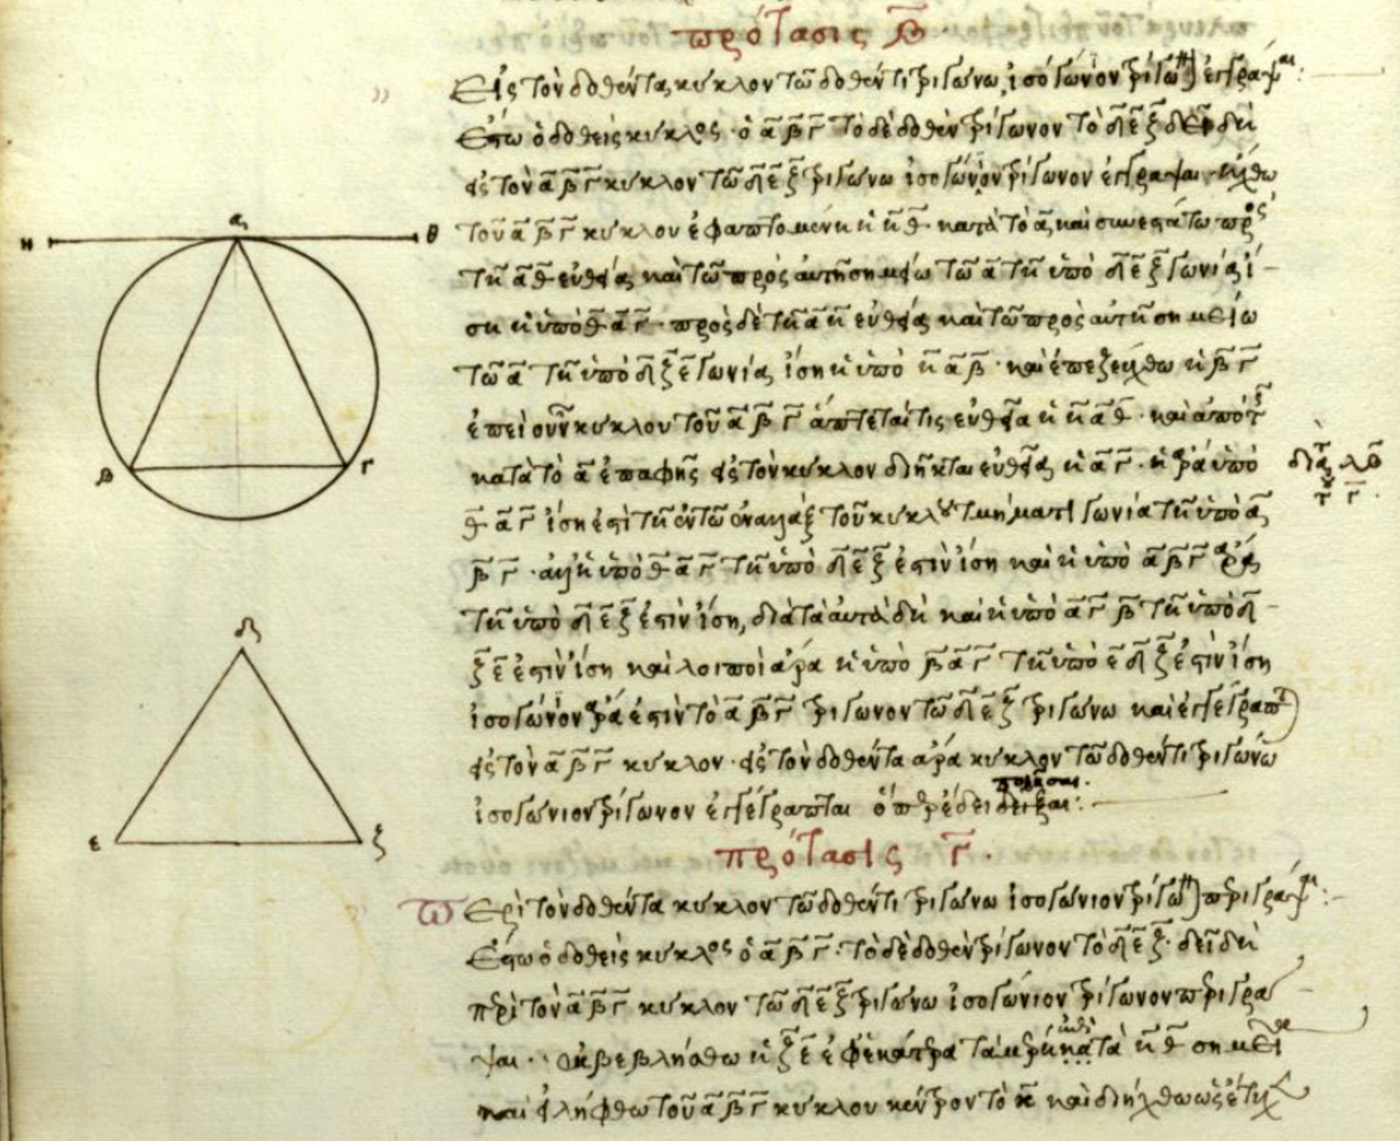 πρότασις β̄
Εἰς τὸν δοθέντα κύκλον τῶ δοθέντι τριγώνω ἰσογώνιον τρίγω(νον) ἐγγράψαι:
Ἔστω ὁ δοθεὶς κύκλος ὁ ᾱ β̄ γ̄ τὸ δὲ δοθὲν τρίγωνον τὸ δ̄ ε̄ ξ̄ δεῖ δὴ
εἰς τὸν ᾱ β̄ γ̄ κύκλον τῶ δ̄ ε̄ ξ̄ τριγώνω ἰσογώνιον τρίγωνον ἐγγράψαι ἤχθω
α
η θ
τοῦ ᾱ β̄ γ̄ κύκλου ἐφαπτομένη ἡ η̄ θ̄ κατὰ τὸ ᾱ, καὶ συνεστάτω πρὸς
τῆ ᾱ θ̄ εὐθεία καὶ τῶ πρὸς αὐτῆ σημείω τῶ ᾱ τῆ ὑπὸ δ̄ ε̄ ξ̄ γωνία ἴ-
ση ἡ ὑπὸ θ̄ ᾱ γ̄ · πρὸς δὲ τῆ ᾱ η̄ εὐθεία καὶ τῶ πρὸς αὐτῆ σημείω
τῶ ᾱ τῆ ὑπὸ δ̄ ξ̄ ε̄ γωνία ἴση ἡ ὑπὸ η̄ ᾱ β̄ · καὶ ἐπεζεύχθω ἡ β̄ γ̄
ἐπεὶ οὖν κύκλου τοῦ ᾱ β̄ γ̄ ἅπτεταί τις εὐθεῖα ἡ η̄ ᾱ θ̄ · καὶ ἀπὸ τῆς
κατὰ τὸ ᾱ ἐπαφῆς εἰς τὸν κύκλον διῆκται εὐθεῖα ἡ ᾱ γ̄ · ἡ ἄρα ὑπὸ
διὰ λβ
τοῦ γ̄
β γ
θ̄ ᾱ γ̄ ἴση ἐστὶ τῆ ἐν τῶ ἐναλλὰξ τοῦ κύκλου τμήματι γωνία τῆ ὑπὸ ᾱ
β̄ γ̄ · ἀλλ' ἡ ὑπὸ θ̄ ᾱ γ̄ τῆ ὑπὸ δ̄ ε̄ ξ̄ ἐστὶν ἴση καὶ ἡ ὑπὸ ᾱ β̄ γ̄ ἄρα
τῆ ὑπὸ δ̄ ε̄ ξ̄ ἐστὶν ἴση, διὰ τὰ αὐτὰ δὴ καὶ ἡ ὑπὸ ᾱ γ̄ β̄ τῆ ὑπὸ δ̄ -
δ
ξ̄ ε̄ ἐστὶν ἴση καὶ λοιπὸὶ ἄρα ἡ ὑπὸ β̄ ᾱ γ̄ τῆ ὑπὸ ε̄ δ̄ ξ̄ ἐστὶν ἴση
ἰσογώνιον ἄρα ἐστὶν τὸ ᾱ β̄ γ̄ τρίγωνον τῶ δ̄ ε̄ ξ̄ τριγώνω καὶ ἐγγέγραπται
εἰς τὸν ᾱ β̄ γ̄ κύκλον · εἰς τὸν δοθέντα ἄρα κύκλον τῶ δοθέντι τριγώνω
ποιῆσαι.
ἰσογώνιον τρίγωνον ἐγγέγραπται ὅπερ ἔδει δεῖξαι:
ε ξ
πρότασις γ̄.
Περὶ τὸν δοθέντα κύκλον τῶ δοθέντι τριγώνω ἰσογώνιον τρίγω(νον) περιγράψαι:
Ἔστω ὁ δοθεὶς κύκλος ὁ ᾱ β̄ γ̄ · τὸ δὲ δοθὲν τρίγωνον τὸ δ̄ ε̄ ξ̄ · δεῖ δὴ
περὶ τὸν ᾱ β̄ γ̄ κύκλον τῶ δ̄ ε̄ ξ̄ τριγώνω ἰσογώνιον τρίγωνον περιγρά-
ψαι · ἐκβεβλήσθω ἡ ξ̄ ε̄ ἐφ' ἑκάτερα τὰ μέρη κατὰ τὰ η̄ θ̄ σημεῖα
καὶ εἰλήφθω τοῦ ᾱ β̄ γ̄ κύκλου κέντρον τὸ κ̄ καὶ διήχθω ὡς ἔτυχ